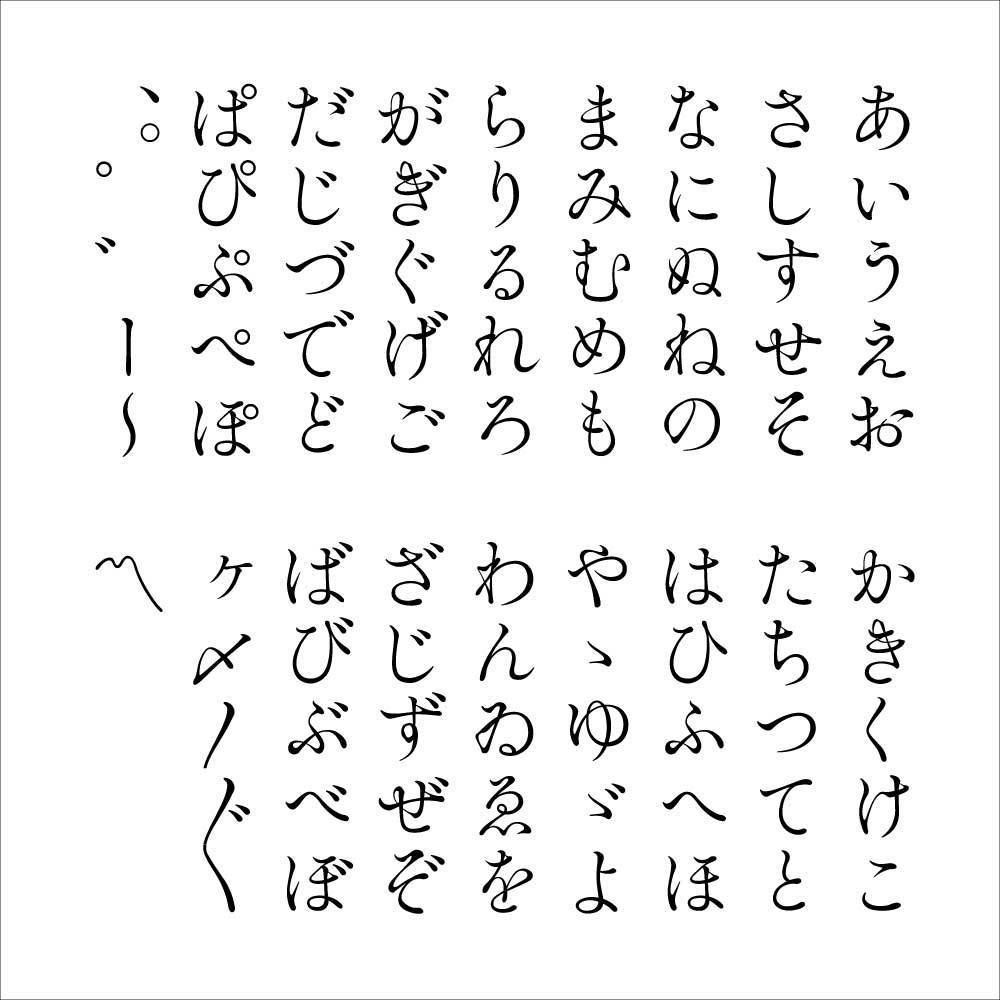 あいうえお
かきくけこ
さしすせそ
たちつてと
なにぬねの
はひふへほ
まみむめも
やゝゆゞよ
らりるれろ
わんゐゑを
がぎぐげご
ざじずぜぞ
だじづでど
ばびぶべぼ
ぱぴぷぺぽ
ヶ〆ノ〲
、。゜゛ー〜
〽